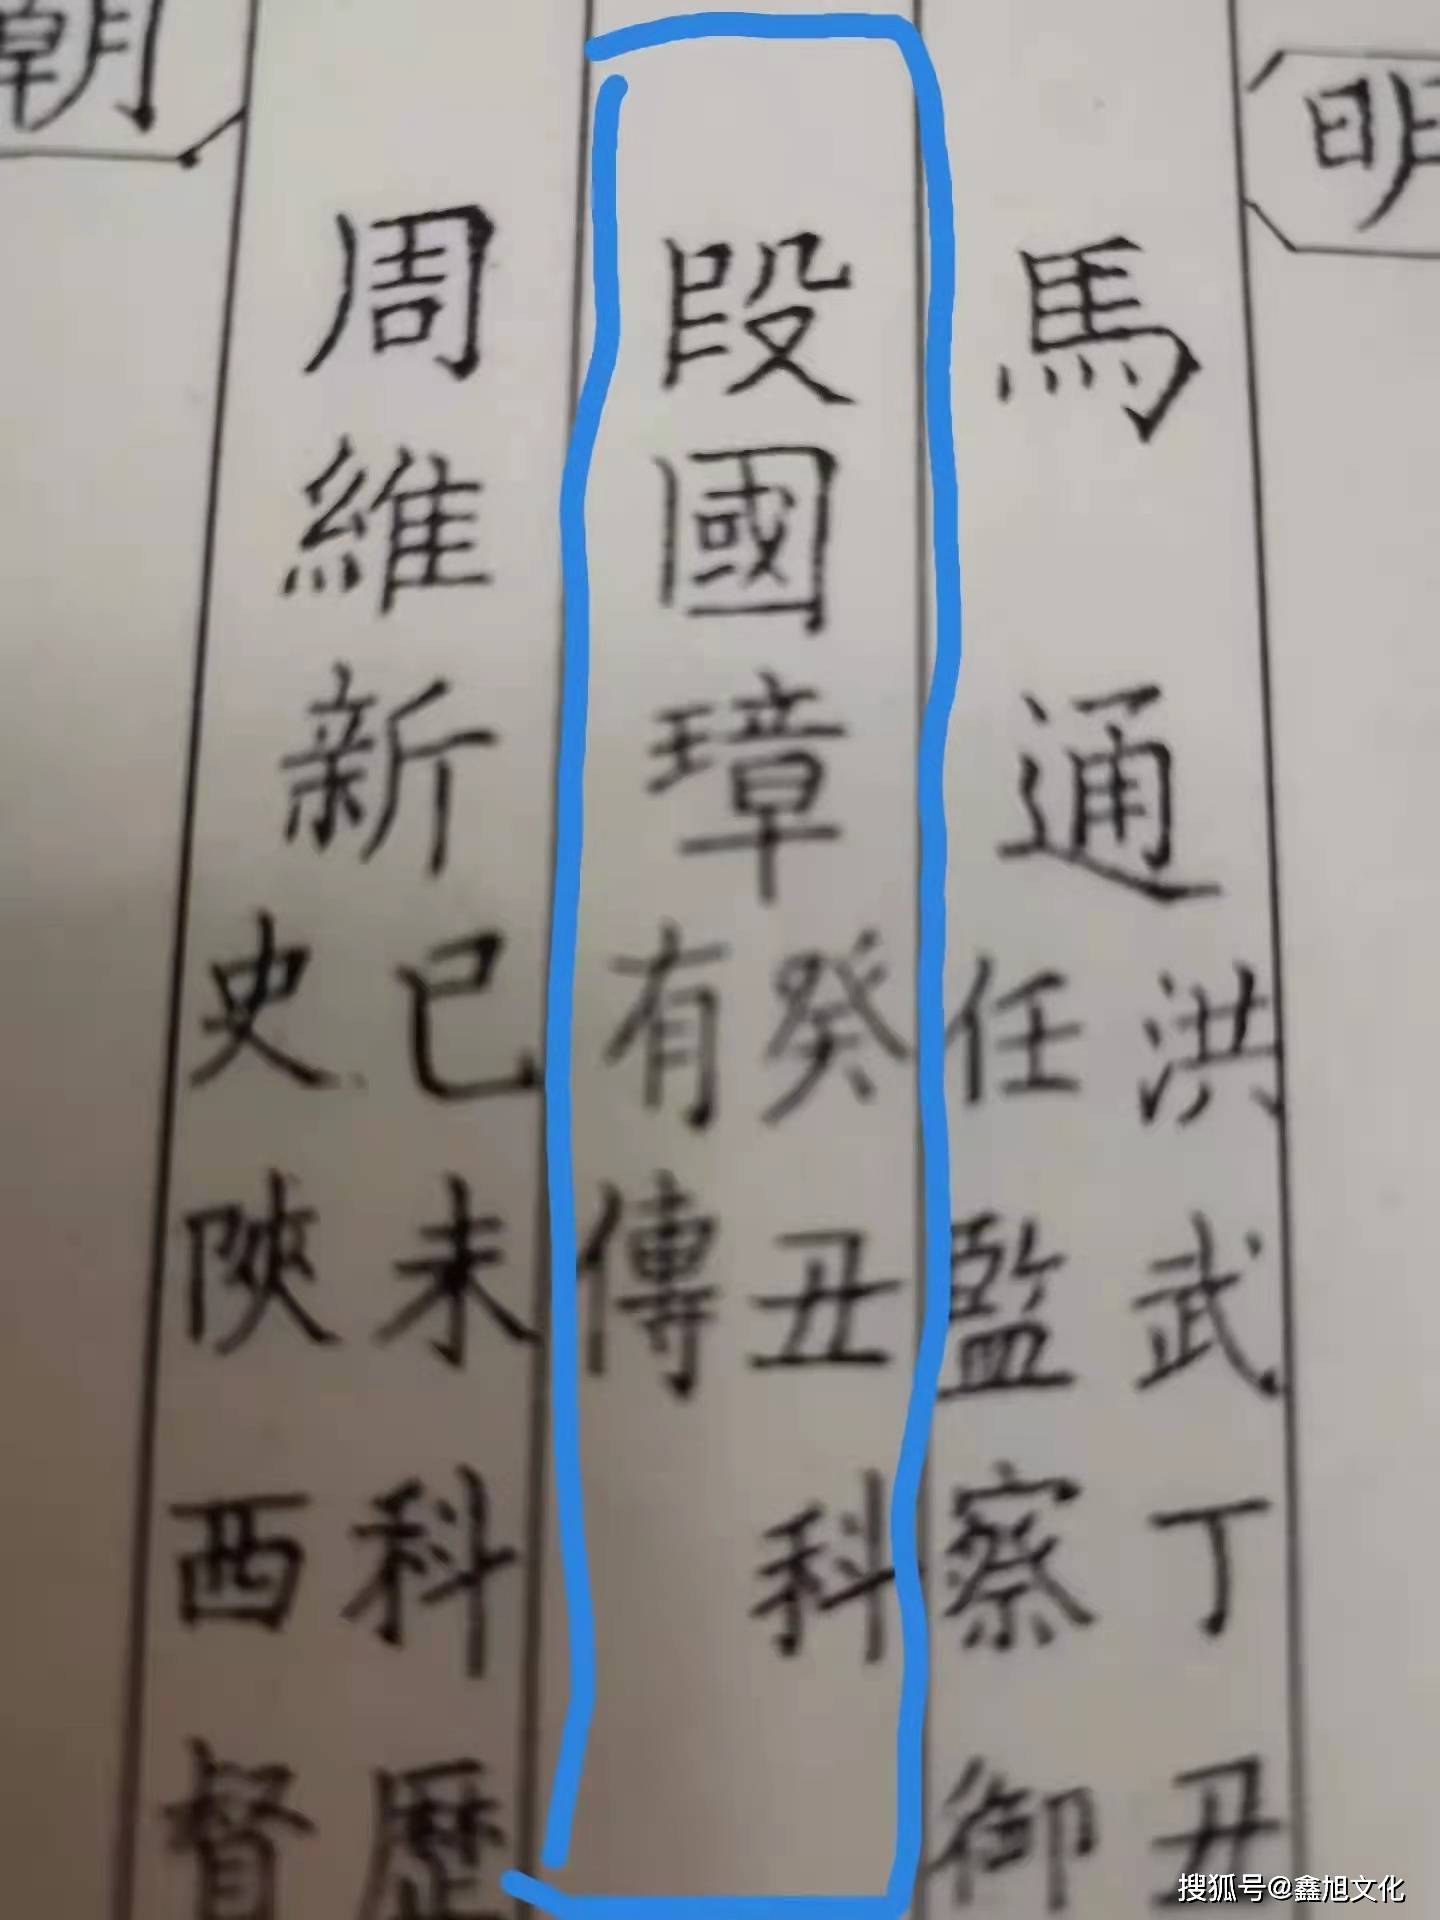 明
馬 通
洪武丁丑
任監察御
段國璋
癸丑科
有傳
周維新
已未科歷
史陝西督
朝
搜狐号@鑫旭文化